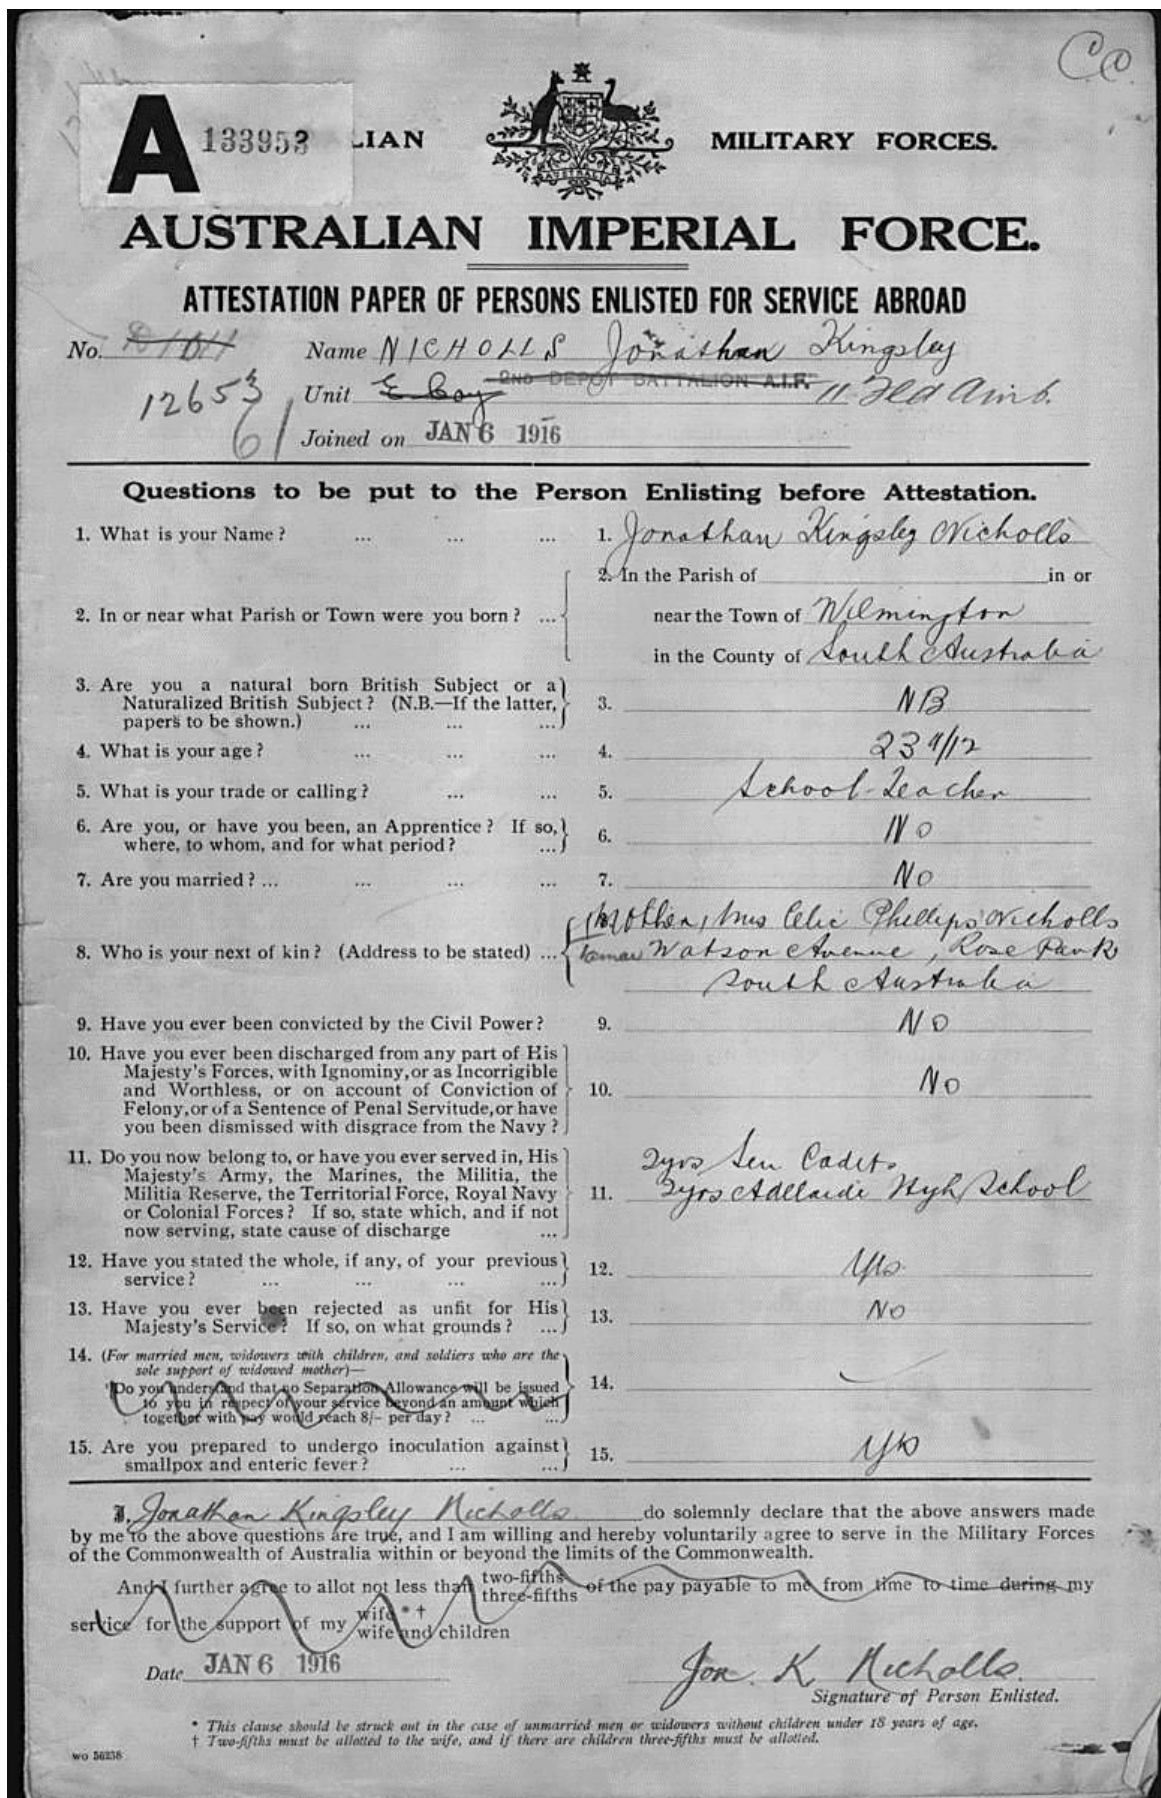 Co.
A 133953 LIAN MILITARY FORCES.
AUSTRALIA
AUSTRALIAN IMPERIAL FORCE.
ATTESTATION PAPER OF PERSONS ENLISTED FOR SERVICE ABROAD
No. Name NICHOLLS Jonathan Kingsley
12653 Unit E Coy 2ND DEPOT BATTALION A.I.F. 11 Fld Amb.
61 Joined on JAN 6 1916
Questions to be put to the Person Enlisting before Attestation.
1. What is your Name? ... ... ... 1. Jonathan Kingsley Nicholls
2. In the Parish of in or
2. In or near what Parish or Town were you born? ... near the Town of Wilmington
in the County of South Australia
3. Are you a natural born British Subject or a
Naturalized British Subject? (N.B.—If the latter, 3. NB
papers to be shown.) ... ... ...
4. What is your age? ... ... ... 4. 23
5. What is your trade or calling? ... ... 5. School-Teacher
6. Are you, or have you been, an Apprentice? If so, 6. No
where, to whom, and for what period? ...
7. Are you married? ... ... ... ... 7. No
Mother, Mrs Phillips Nicholls
8. Who is your next of kin? (Address to be stated) ... Watson Avenue, Rose Park
South Australia
9. Have you ever been convicted by the Civil Power? 9. No
10. Have you ever been discharged from any part of His
Majesty's Forces, with Ignominy, or as Incorrigible
and Worthless, or on account of Conviction of 10. No
Felony, or of a Sentence of Penal Servitude, or have
you been dismissed with disgrace from the Navy?
11. Do you now belong to, or have you ever served in, His 2yrs Sen Cadets
Majesty's Army, the Marines, the Militia, the
Militia Reserve, the Territorial Force, Royal Navy 11. 2yrs Adelaide High School
or Colonial Forces? If so, state which, and if not
now serving, state cause of discharge ...
12. Have you stated the whole, if any, of your previous 12. Yes
service? ... ... ... ...
13. Have you ever been rejected as unfit for His 13. No
Majesty's Service? If so, on what grounds? ...
14. (For married men, widowers with children, and soldiers who are the
sole support of widowed mother)—
Do you understand that no Separation Allowance will be issued 14.
to you in respect of your service beyond an amount which
together with pay would reach 8/- per day? ... ...
15. Are you prepared to undergo inoculation against 15. Yes
smallpox and enteric fever? ... ...
I, Jonathan Kingsley Nicholls do solemnly declare that the above answers made
by me to the above questions are true, and I am willing and hereby voluntarily agree to serve in the Military Forces
of the Commonwealth of Australia within or beyond the limits of the Commonwealth.
And I further agree to allot not less than two-fifths three-fifths of the pay payable to me from time to time during my
service for the support of my wife * † wife and children
Date JAN 6 1916 Jon. K Nicholls.
Signature of Person Enlisted.
* This clause should be struck out in the case of unmarried men or widowers without children under 18 years of age.
† Two-fifths must be allotted to the wife, and if there are children three-fifths must be allotted.
WO 56238